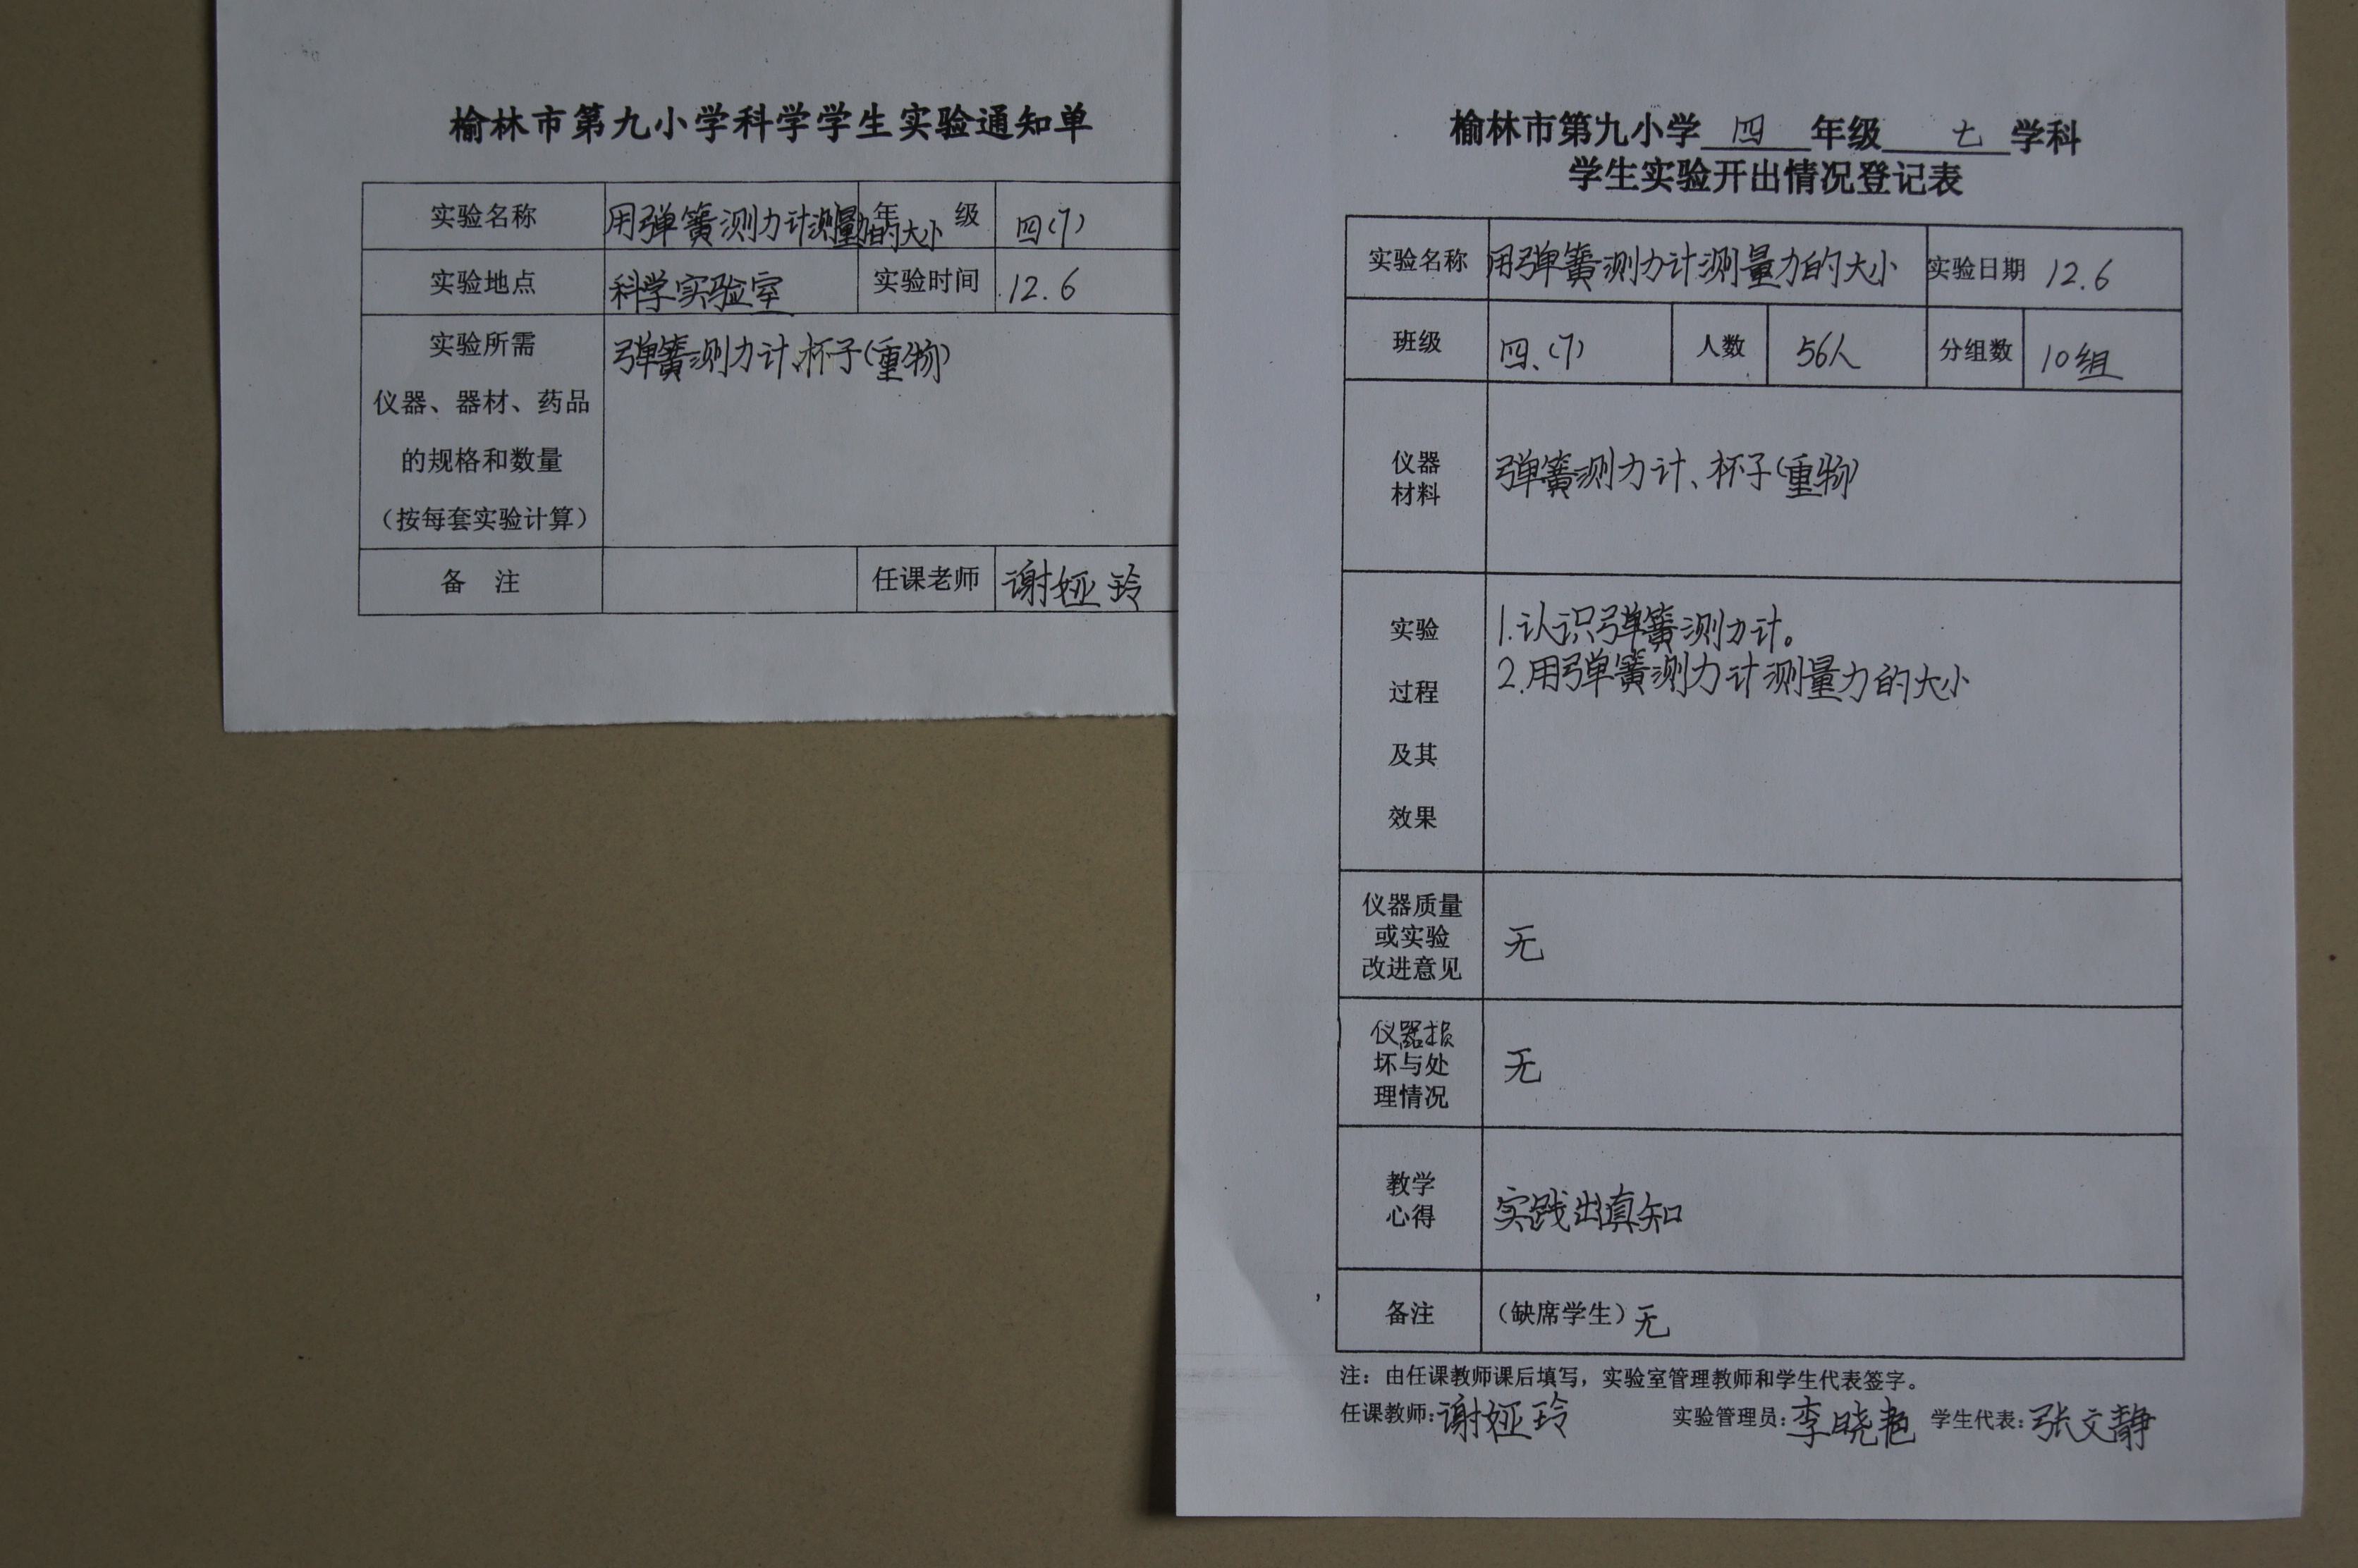 榆林市第九小学科学学生实验通知单
实验名称 用弹簧测力计测量力的大小 年 级 四(7)
实验地点 科学实验室 实验时间 12.6
实验所需
仪器、器材、药品
的规格和数量
（按每套实验计算）
弹簧测力计、杯子(重物)
备 注 任课老师 谢娅玲
榆林市第九小学 四 年级 七 学科
学生实验开出情况登记表
实验名称 用弹簧测力计测量力的大小 实验日期 12.6
班级 四.(7) 人数 56人 分组数 10组
仪器
材料
弹簧测力计、杯子(重物)
实验
过程
及其
效果
1.认识弹簧测力计。
2.用弹簧测力计测量力的大小
仪器质量
或实验
改进意见
无
仪器损
坏与处
理情况
无
教学
心得
实践出真知
备注 （缺席学生）无
注：由任课教师课后填写，实验室管理教师和学生代表签字。
任课教师：谢娅玲 实验管理员：李晓艳 学生代表：张文静